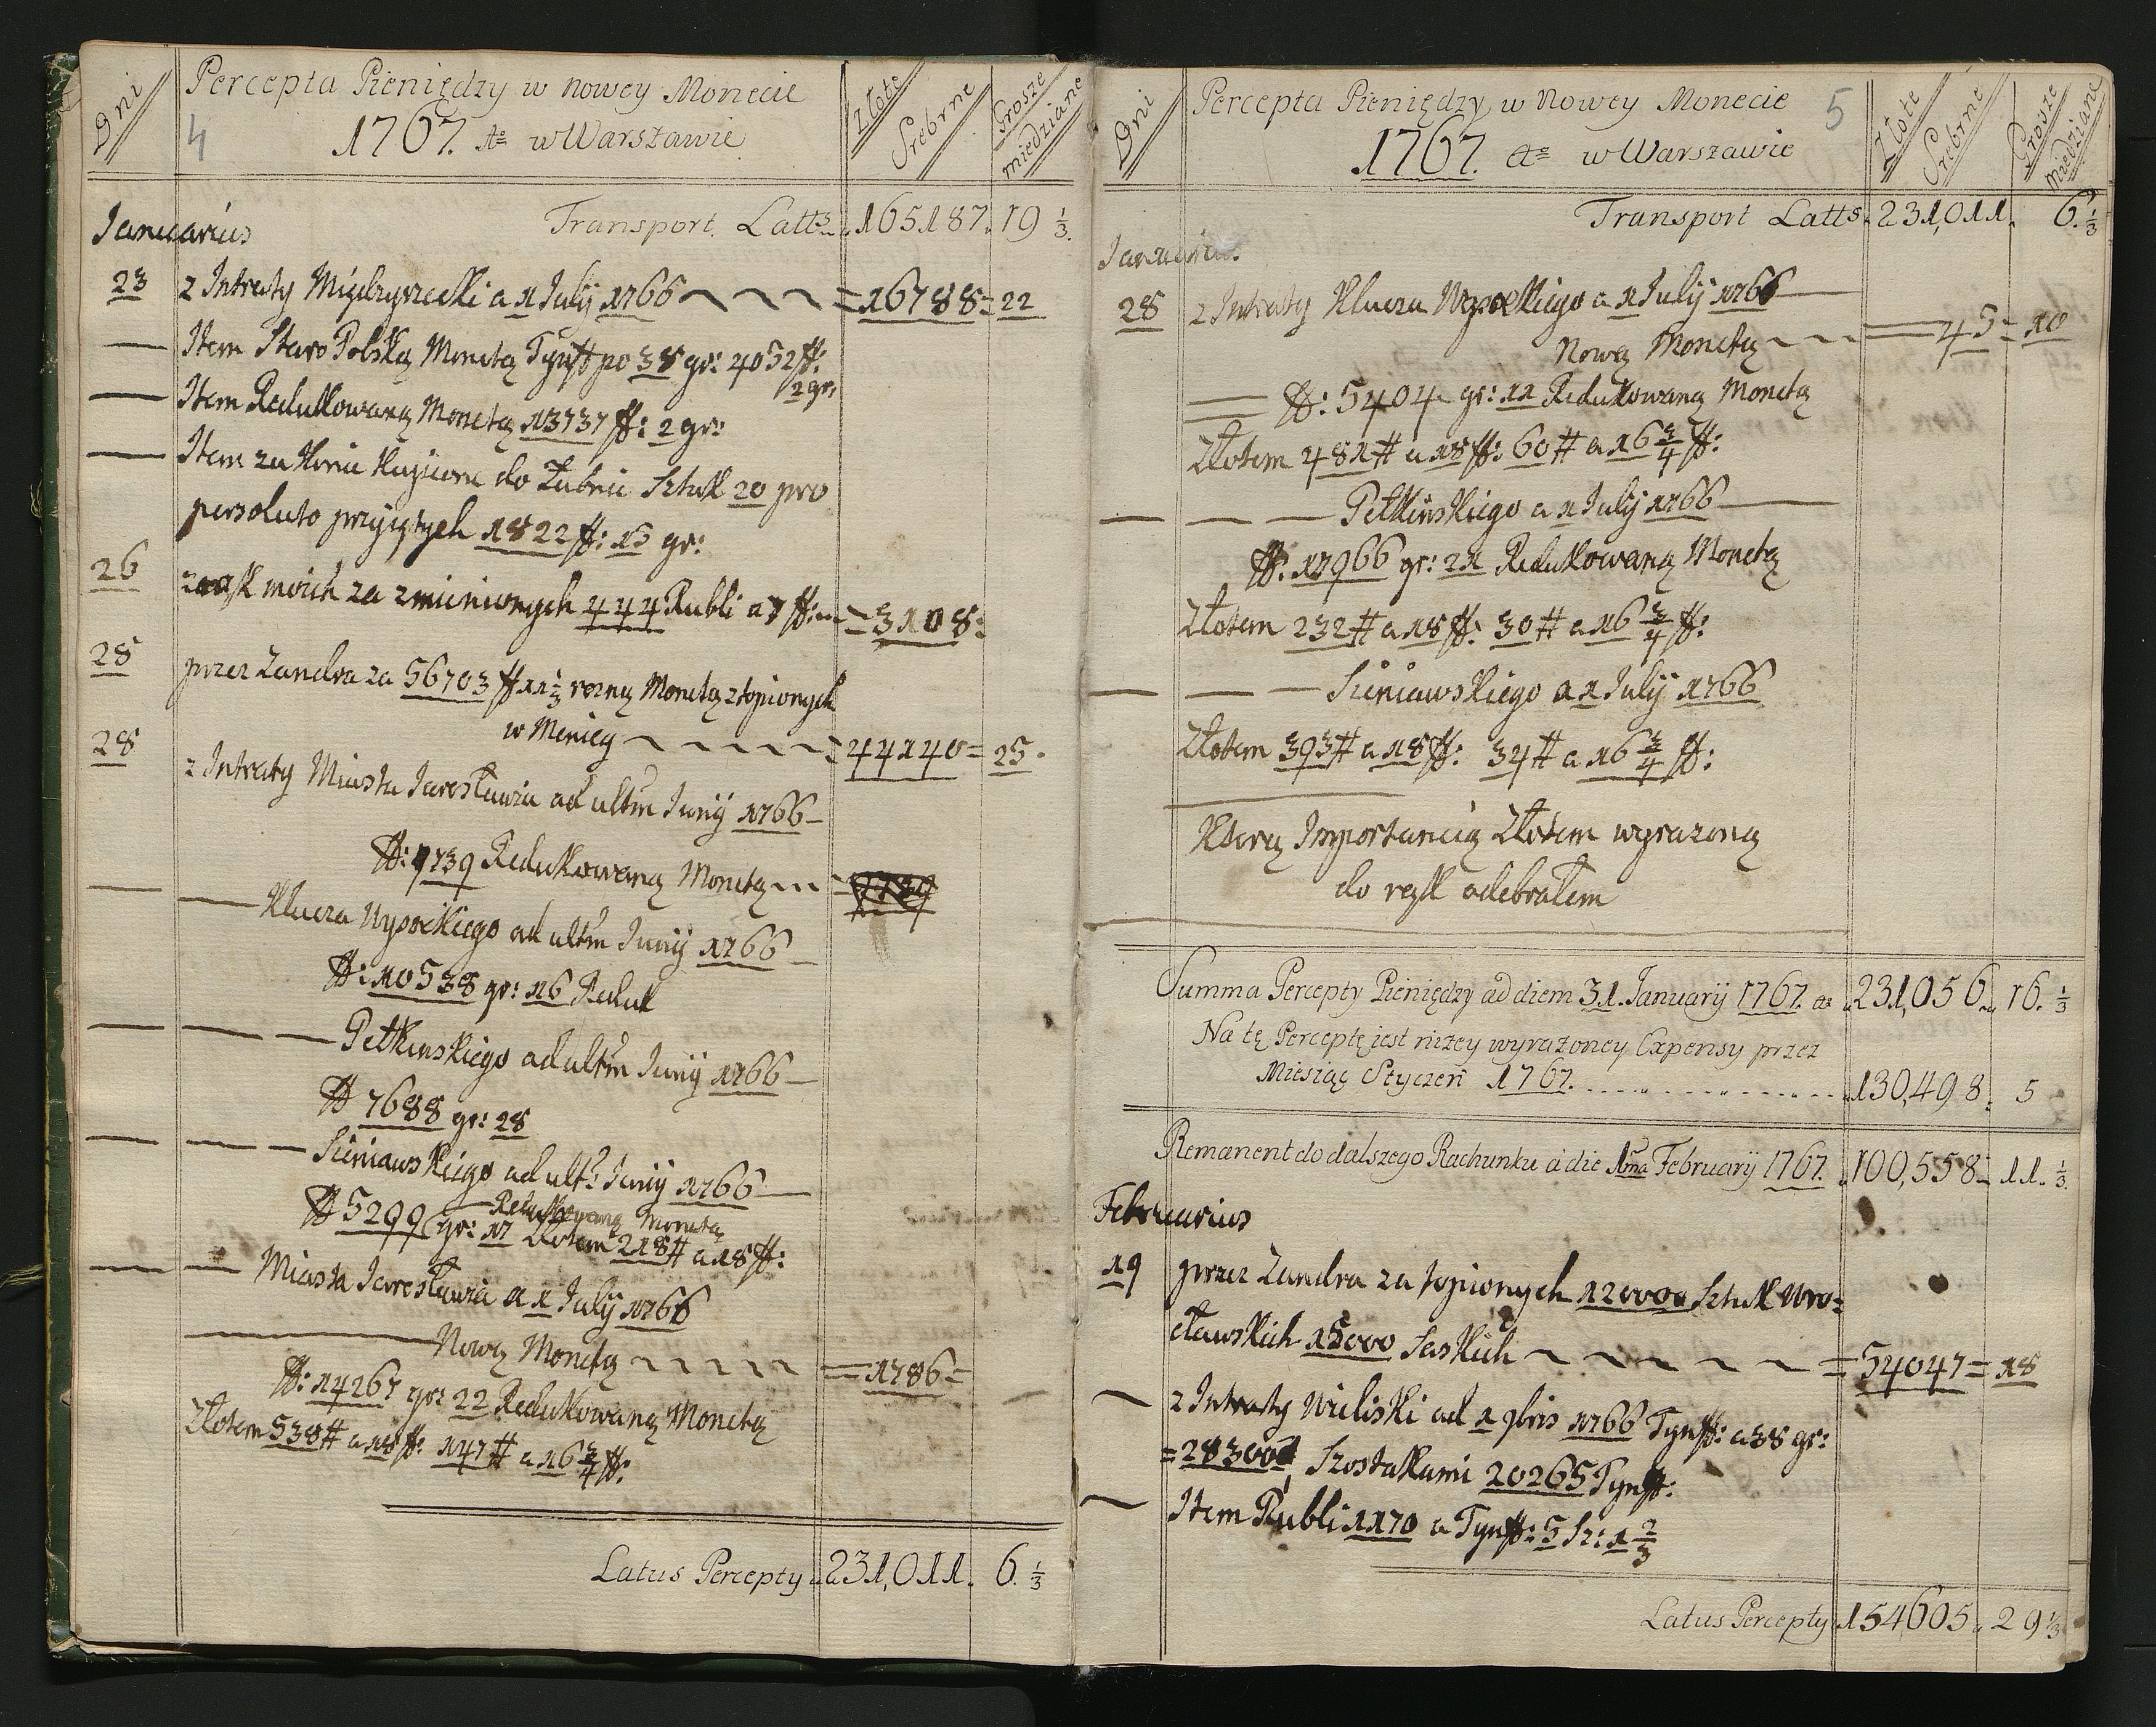 Dni
Percepta Pieniędzy w Nowey Monecie
4
1767. Ae w Warszawie
Złote Srebrne
Grosze miedziane
Januarius
Transport Latts 165187. 19 1/3.
23 z Intraty Międzyrzecki a 1 July 1766 = 16788 = 22
— Item Staro Polską Monetą Tynff po 38 gr: 4052 ff:
2 gr:
— Item Redukowaną Monetą 13737 ff: 2 gr:
— Item za Konie Kupione do Żubru Sztuk 20 pro
persoluto przyiętych 1822 ff: 15 gr:
26 z rąk moich za zmienionych 444 Rubli a 7 ff: = 3108:
28 przez Zandra za 56703 ff 11 1/3 rożną Monetą ztopionych
w Menicy = 44140 = 25.
28 z Intraty Miasta Jarosławia ad ultm Junij 1766 —
ff: 9739 Redukowaną Monetą
— — Klucza Wysockiego ad ultm Junij 1766 —
ff: 10538 gr: 16 Reduk
— — — Pełkinskiego ad ultm Junij 1766 —
ff 7688 gr: 28
— — — Sieniawskiego ad ult: Junij 1766 —
— Redukowaną Monetą
ff 5299 gr: 17 Złotem 218 # a 18 ff:
— — Miasta Jarosławia a 1 July 1766
Nową Monetą = 1786 =
ff: 14267 gr: 22 Redukowaną Monetą
Złotem 538 # a 18 ff: 147 # a 16 3/4 ff:
Latus Percepty 231,011. 6. 1/3
Dni
Percepta Pieniędzy w Nowey Monecie
5
1767. Ae w Warszawie
Złote Srebrne
Grosze Miedziane
Transport Latts. 231,011. 6. 1/3
Januarius
28 z Intraty Klucza Wysockiego a 1 July 1766 —
Nową Monetą = 45 = 10
ff: 5404 gr: 11 Redukowaną Monetą
Złotem 481 # a 18 ff: 60 # a 16 3/4 ff:
— — — Pełkinskiego a 1 July 1766 —
ff: 17966 gr: 21 Redukowaną Monetą
Złotem 232 # a 18 ff: 30 # a 16 3/4 ff:
— — — Sieniawskiego a 1 July 1766
Złotem 393 # a 18 ff: 34 # a 16 3/4 ff:
Którą Importancią Złotem wyrażoną
do ręk odebrałem
Summa Percepty Pieniędzy ad diem 31. Januarij 1767. ae 231,056. 16. 1/3
Na tę Perceptę jest niżey wyrażoney Expensy przez
Miesiąc Styczeń 1767. 130,498. 5
Remanent do dalszego Rachunku a die 1ma Februarij 1767. 100,558. 11. 1/3.
Februarius
19 przez Zandra za topionych 12000 Sztuk Wro=
cławskich 15000 Saskich = 54047 = 18
— z Intraty Wieliski ad 1 9bris 1766 Tynff: a 38 gr:
= 28300 Szostakami 20265 Tynff:
— Item Rubli 1170 a Tynff: 5 Sz: 1 2/3
Latus Percepty 154605. 29 1/3